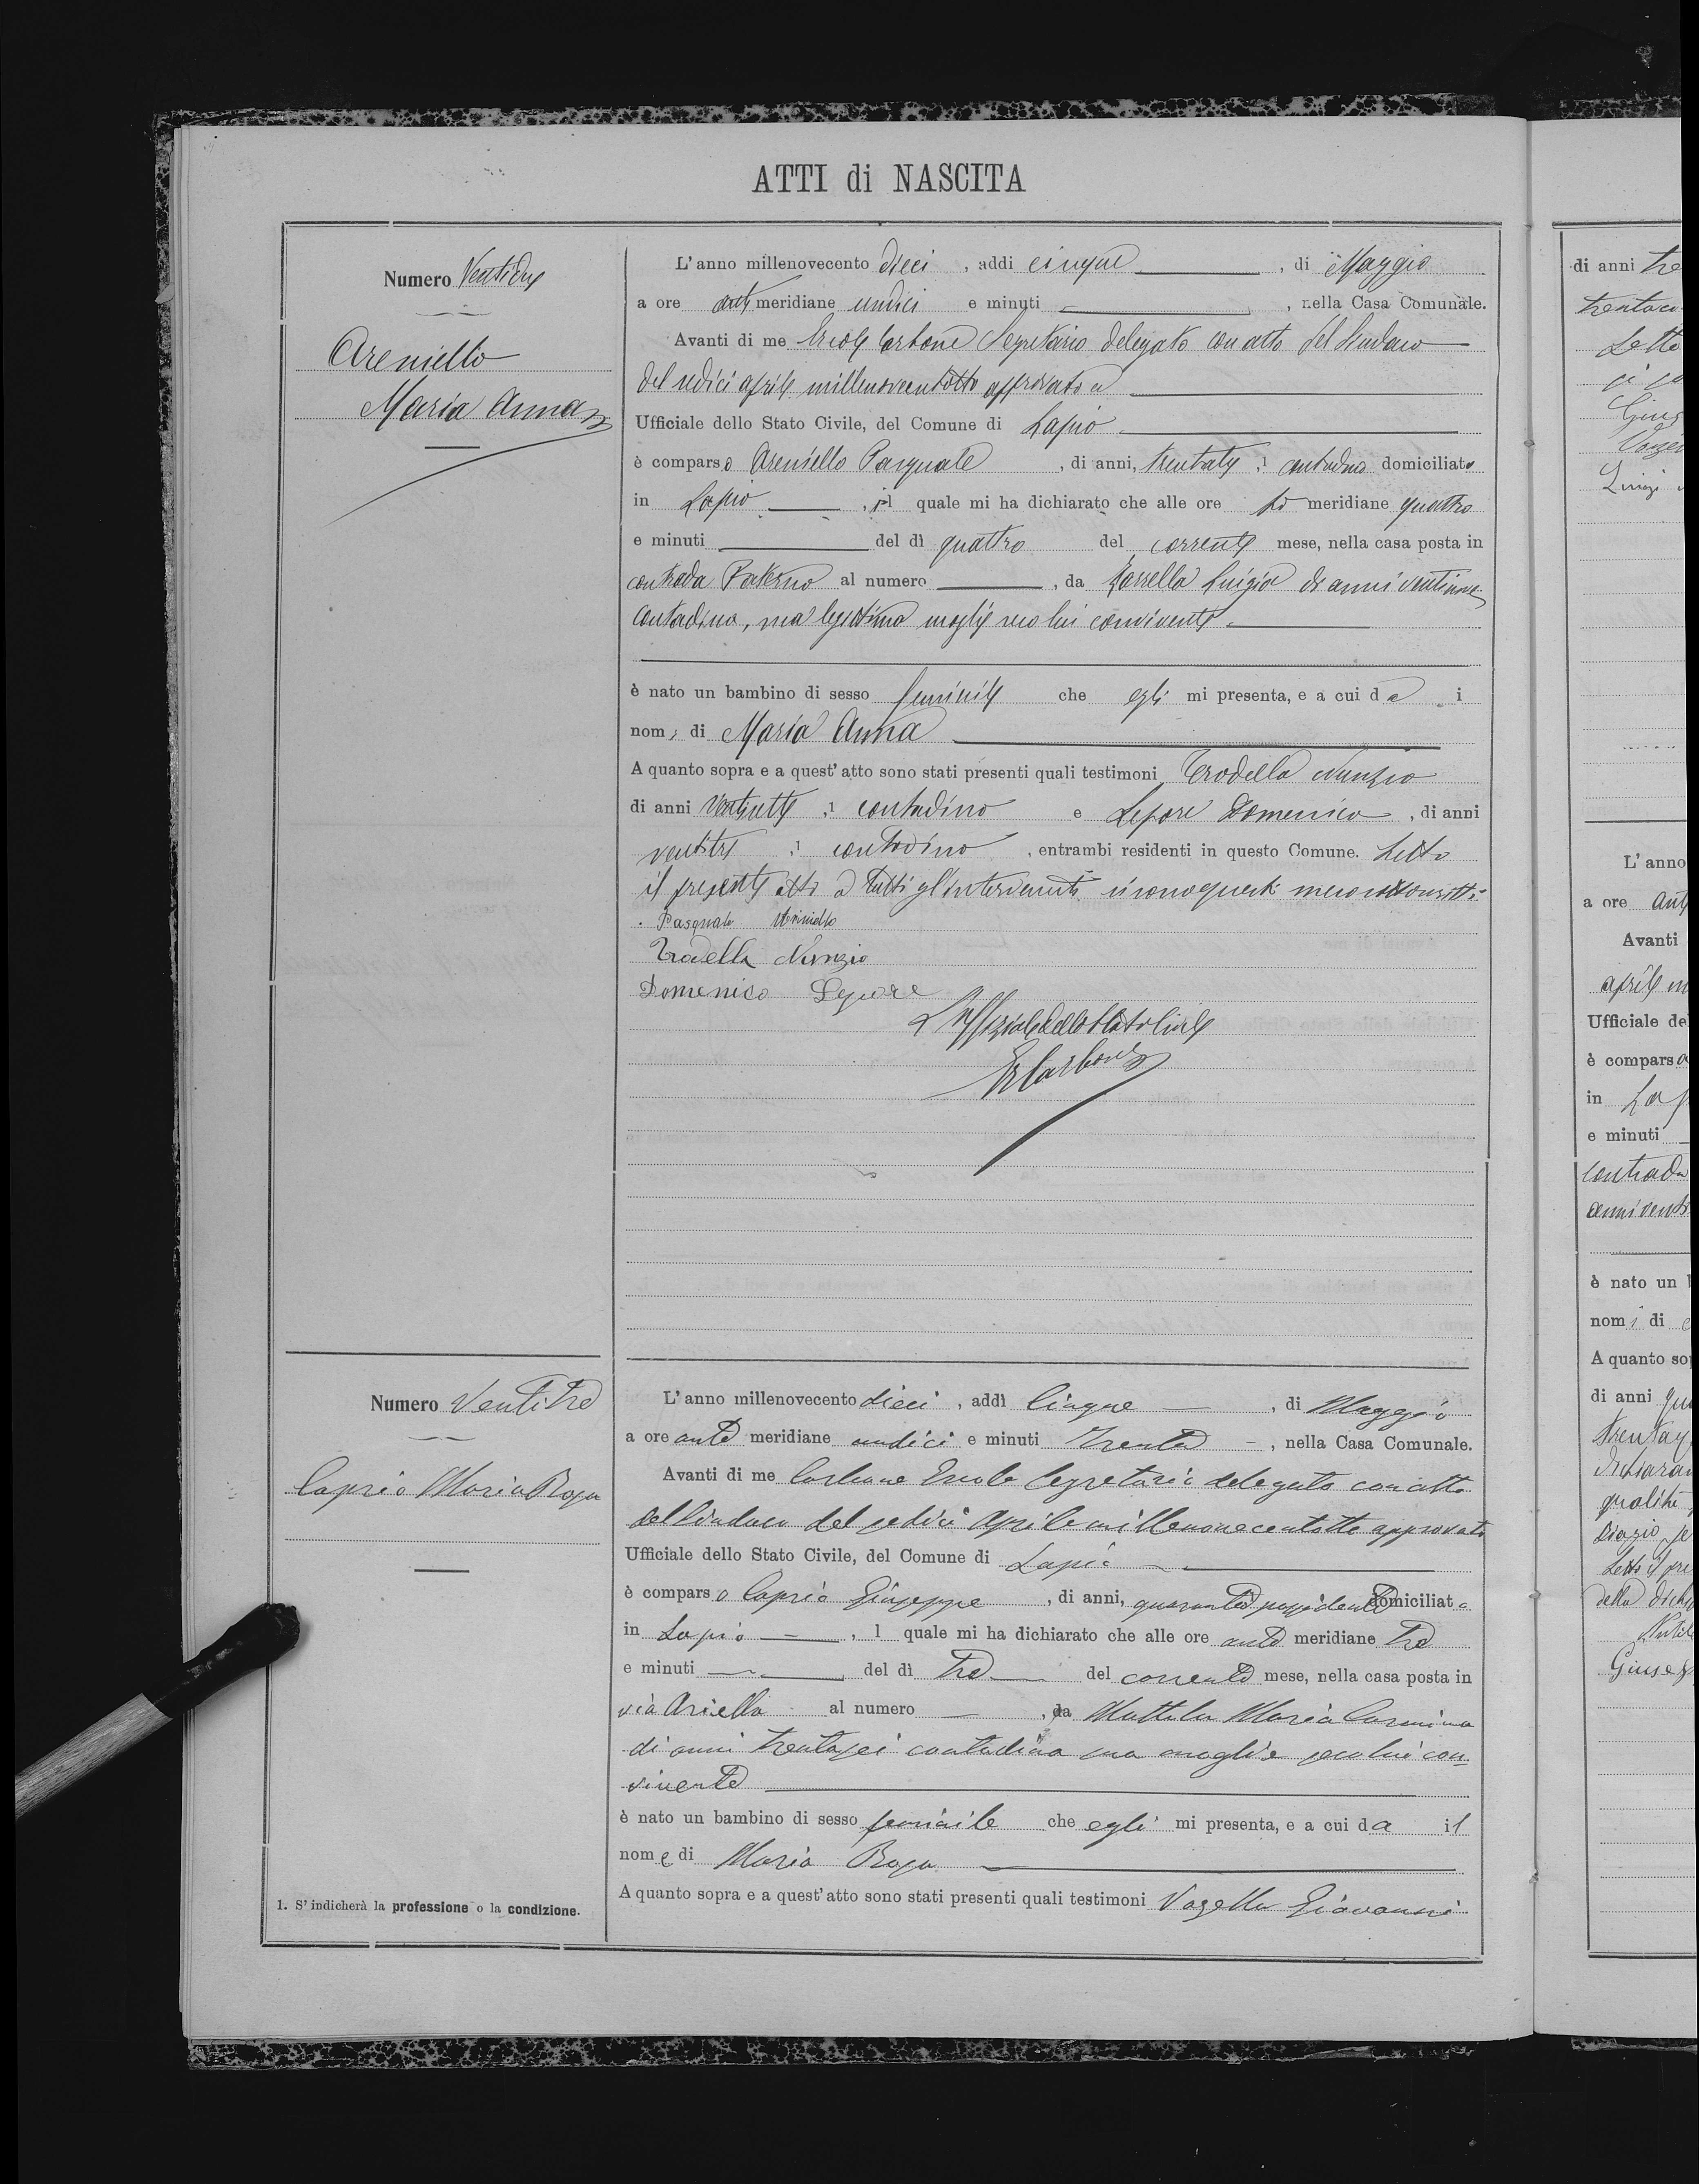 ATTI di NASCITA
Numero Ventidue
Areniello
Maria Anna
L'anno millenovecento dieci, addì cinque, di Maggio
a ore anti meridiane undici e minuti, nella Casa Comunale.
Avanti di me Ercole Carbone Segretario delegato con atto del Sindaco
del sedici aprile millenovecentotto approvato
Ufficiale dello Stato Civile, del Comune di Lapio
è comparso Areniello Pasquale, di anni, contadino domiciliato
in Lapio, il quale mi ha dichiarato che alle ore meridiane quattro
e minuti del dì quattro del corrente mese, nella casa posta in
contrada Paterno al numero, da Luigia di anni ventinove
contadina, sua legittima moglie seco lui convivente
è nato un bambino di sesso feminile che egli mi presenta, e a cui da i
nomi di Maria Anna
A quanto sopra e a quest'atto sono stati presenti quali testimoni Trodella Nunzio
di anni contadino e Lepore Domenico, di anni
ventitre contadino, entrambi residenti in questo Comune. Letto
il presente atto a tutti gl'intervenuti
Pasquale Areniello
Trodella Nunzio
Domenico Lepore
L'Uffiziale dello Stato Civile
E Carbone
Numero Ventitre
Caprio Maria Rosa
L'anno millenovecento dieci, addì Cinque, di Maggio
a ore ante meridiane undici e minuti Trenta, nella Casa Comunale.
Avanti di me Carbone Ercole Segretario delegato con atto
del Sindaco del sedici Aprile millenovecentotto approvato
Ufficiale dello Stato Civile, del Comune di Lapio
è comparso Caprio Giuseppe, di anni, quaranta possidente domiciliato
in Lapio, l quale mi ha dichiarato che alle ore ante meridiane Tre
e minuti del dì Tre del corrente mese, nella casa posta in
via Ariella al numero, da Maria Carmina
di anni trentasei contadina sua moglie seco lui con-
vivente
è nato un bambino di sesso feminile che egli mi presenta, e a cui da il
nome di Maria Rosa
A quanto sopra e a quest'atto sono stati presenti quali testimoni Vozella Giovanni
1. S'indicherà la professione o la condizione.
di anni
Letto
Luigi
L'anno
a ore ante
Avanti
aprile
Ufficiale de
è compars
in
e minuti
contrada
anni
è nato un
nomi di
A quanto so
di anni